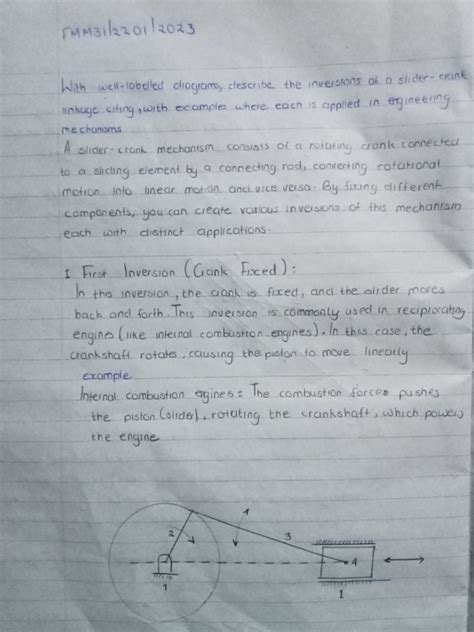 TMM31/2201/2023
With well-labelled diagrams, describe the inversions of a slider-crank
linkage citing, with examples where each is applied in engineering
mechanisms
A slider-crank mechanism consists of a rotating crank connected
to a sliding element by a connecting rod, converting rotational
motion into linear motion and vice versa. By fixing different
components, you can create various inversions of this mechanism
each with distinct applications.
1 First Inversion (Crank Fixed):
In this inversion, the crank is fixed, and the slider moves
back and forth. This inversion is commonly used in reciprocating
engines (like internal combustion engines). In this case, the
crankshaft rotates, causing the piston to move linearly
example
Internal combustion egines: The combustion forces pushes
the piston (slider), rotating the crankshaft, which powers
the engine
2
1
3
4
1
1